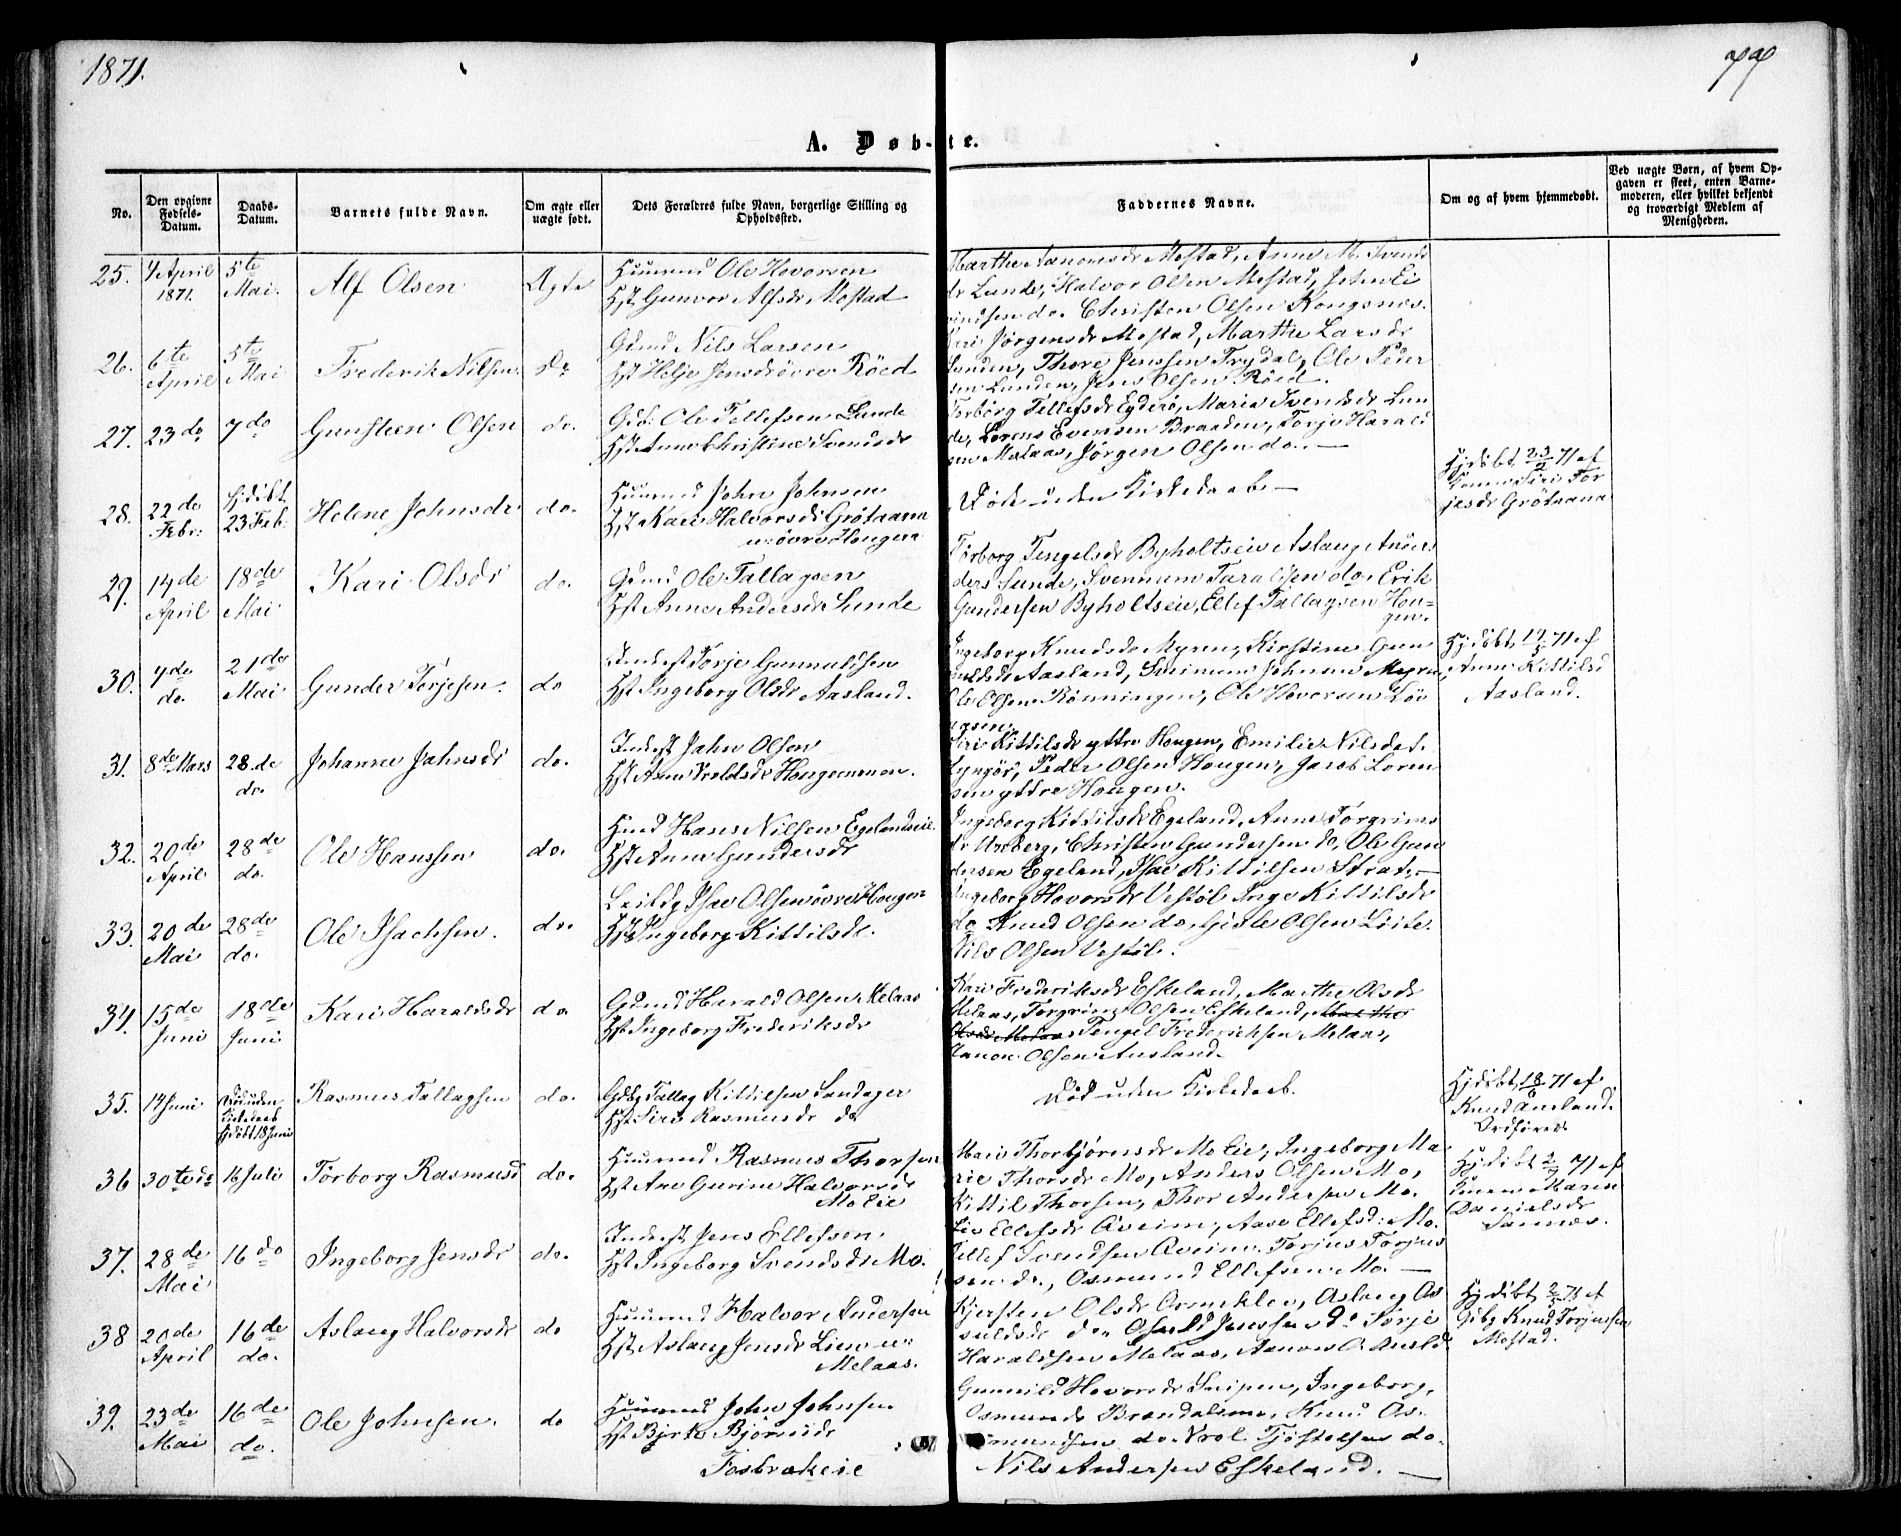 1871.
77
A. Døb-te.
No.
Den opgivne Fødsels-Datum.
Daabs-Datum.
Barnets fulde Navn.
Om ægte eller uægte født.
Dets Forældres fulde Navn, borgerlige Stilling og Opholdsted.
Faddernes Navne.
Om og af hvem hjemmedøbt.
Ved uægte Børn, af hvem Opgaven er skeet, enten Barnemoderen, eller hvilket bekjendt og troværdigt Medlem af Menigheden.
25. 4 April 1871. 5te Mai. Alf Olsen Ægte
Huusmd Ole Hovorsen
Hst Gunvor Alfsdr Mostad
Marthe Aanonsdr Mostad, Anne M. Svends
dr Lunde, Halvor Olsen Mostad, John Ei
vindsen do. Christen Olsen Kongsnes.
26. 6te April 5te Mai Frederik Nilsen. do
Gdmd Nils Larsen
Hst Helje Jensdr øvre Röed
Jørgensdr Mostad, Marthe Larsdr
Lunden, Thore Jenssen Trydal, Ole Peder
sen Lunden, Jens Olsen Röed.
27. 23 do 7 do Gunsteen Olsen do.
Gdb: Ole Tellefsen Lunde
Hst Anne Christine Svendsdr
Torborg Tellefsdr Eyderö, Maria Svendsdr Lun
de, Lorens Evensen Braaden, Torje Harald
sen Melaas, Jørgen Olsen do. —
28. 22de Febr: Hjdöbt 23 Feb. Helene Johnsdr do.
Huusmd John Johnsen
Hst Kari Halvorsdr Grötaana
u: övre Hougen
Död uden Kirkedaab —
Hjdöbt 23/2 71 af
Siri Tor
jesdr Grötaana
29. 14de April 18de Mai Kari Olsdr do.
Gdmd Ole Tallagsen
Hst Anne Andersdr Sunde
Torborg Tengelsdr Byholtseie Aslaug Anders
ders Sunde, Svennum Taraldsen do. Erik
Gundersen Byholtseie, Ellef Tallagsen Hou=
gen.
30. 7de do. 21de Mai Gunder Torjesen. do
Inderst Torje Gunnuldsen
Hst Ingeborg Olsdr Aasland.
Ingeborg Knudsdr Myren, Kirstine Gun
nuldsdr Aasland, Svennum Johnsen Myren,
Ole Olsen Rönningen, Ole Hovorsen Löv
aasen.
Anne Kittilsd
Aasland.
31. 8de Mars 28.de do. Johanne Jahnsdr do.
Inderst Jahn Olsen
Hst Anne Vroldsdr Hougenmoen.
Siri Kittilsdr yttre Hougen, Emilie Nilsdat.
Lyngör, Peder Olsen Hougen, Jacob Loren
sen yttre Hougen.
32. 20de April 28de do. Ole Hanssen do.
Hmd Hans Nilsen Egelandseie.
Hst Anne Gundersdr
Ingeborg Kittilsdr Egeland, Anne Torgrims
dr Aaberg, Christen Gundersen do, Ole Gun
dersen Egeland, Isac Kittilsen Strat. —
33. 20de Mai 28de do. Ole Isachsen. do.
Leildg Isac Olsen øvre Hougen
Hst Ingeborg Kittilsdr.
Ingeborg Hovorsdr Vestöl Inge Kittilsdr
do Knud Olsen do, Gisle Olsen Löite.
Nils Olsen Vestöl.
34. 15de Juni 18de Juni Kari Haraldsdr do
Gdmd Harald Olsen Melaas
Hst Ingeborg Frederiksdr
Kari Frederiksdr Eskeland, Marthe Olsdr
Melaas, Torgrim Olsen Eskeland, Marthe
Olsdr Melaas Tengel Frederichsen Melaas,
Aanon Olsen Ausland.
35. 14 Juni. Död uden Kirkedaab hjdöbt 18 Juni Rasmus Tallagsen do.
Gdbg Tallag Kittilsen Sandager
Hst Siri Rasmusdr do
Död uden Kirkedaab.
Hjdöbt 18/6 71 af
Knud Ausland.
Ordförer
36 30te do 16 Juli Torborg Rasmusd do.
Huusmd Rasmus Thorsen
Hst Ane Gurine Halvorsdr
Moeie
Mari Thorbjörnsdr Moeie, Ingeborg Ma
rie Thorsdr Mo, Anders Olsen Mo,
Kittil Thorsen, Thor Andersen Mo.
Hjdöbt 2/7 71 af
Maren
Danielsdr
Sannes.
37. 28de Mai 16 do Ingeborg Jensdr do.
Inderst Jens Ellefsen
Hst Ingeborg Svendsdr Mo.
Siv Ellefsdr Aveim, Aase Ellefsd: Mo.
Tellef Svendsen Aveim. Torjus Torjus
sen do., Osmund Ellefsen Mo. —
38 20de April 16de do. Aslaug Halvorsdr do
Huusmd Halvor Andersen
Hst Aslaug Jensdr Lien u:
Melaas.
Kjersten Olsdr Ormeklev, Aslaug Os
suldsdr do Osuld Jenssen do Torje
Haraldsen Melaas, Aanon O. Ausld
Hjdöbt 2/5 71 af
Gdbg Knud Torjussen
Mostad.
39. 23de Mai 16de do. Ole Johnsen. do
Huusmd John Johnsen
Hst Birte Björnsdr
Fosbrækeie
Gunnild Hovorsdr Snipen, Ingeborg,
Osmundsd Brændalsmo, Knud Os-
mundsen do. Vrol. Tjöstolsen do.
Nils Andersen Eskeland. —